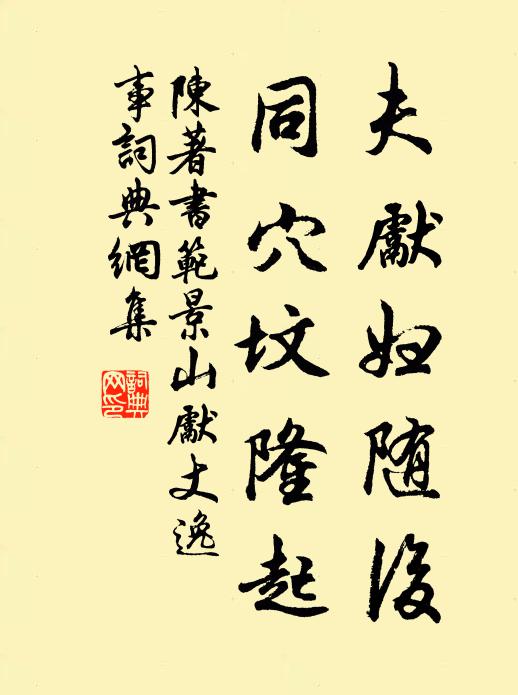 夫獻妇随後
同穴坟隆起
陳著書範景山獻丈逸
事詞典網集
詞典网印